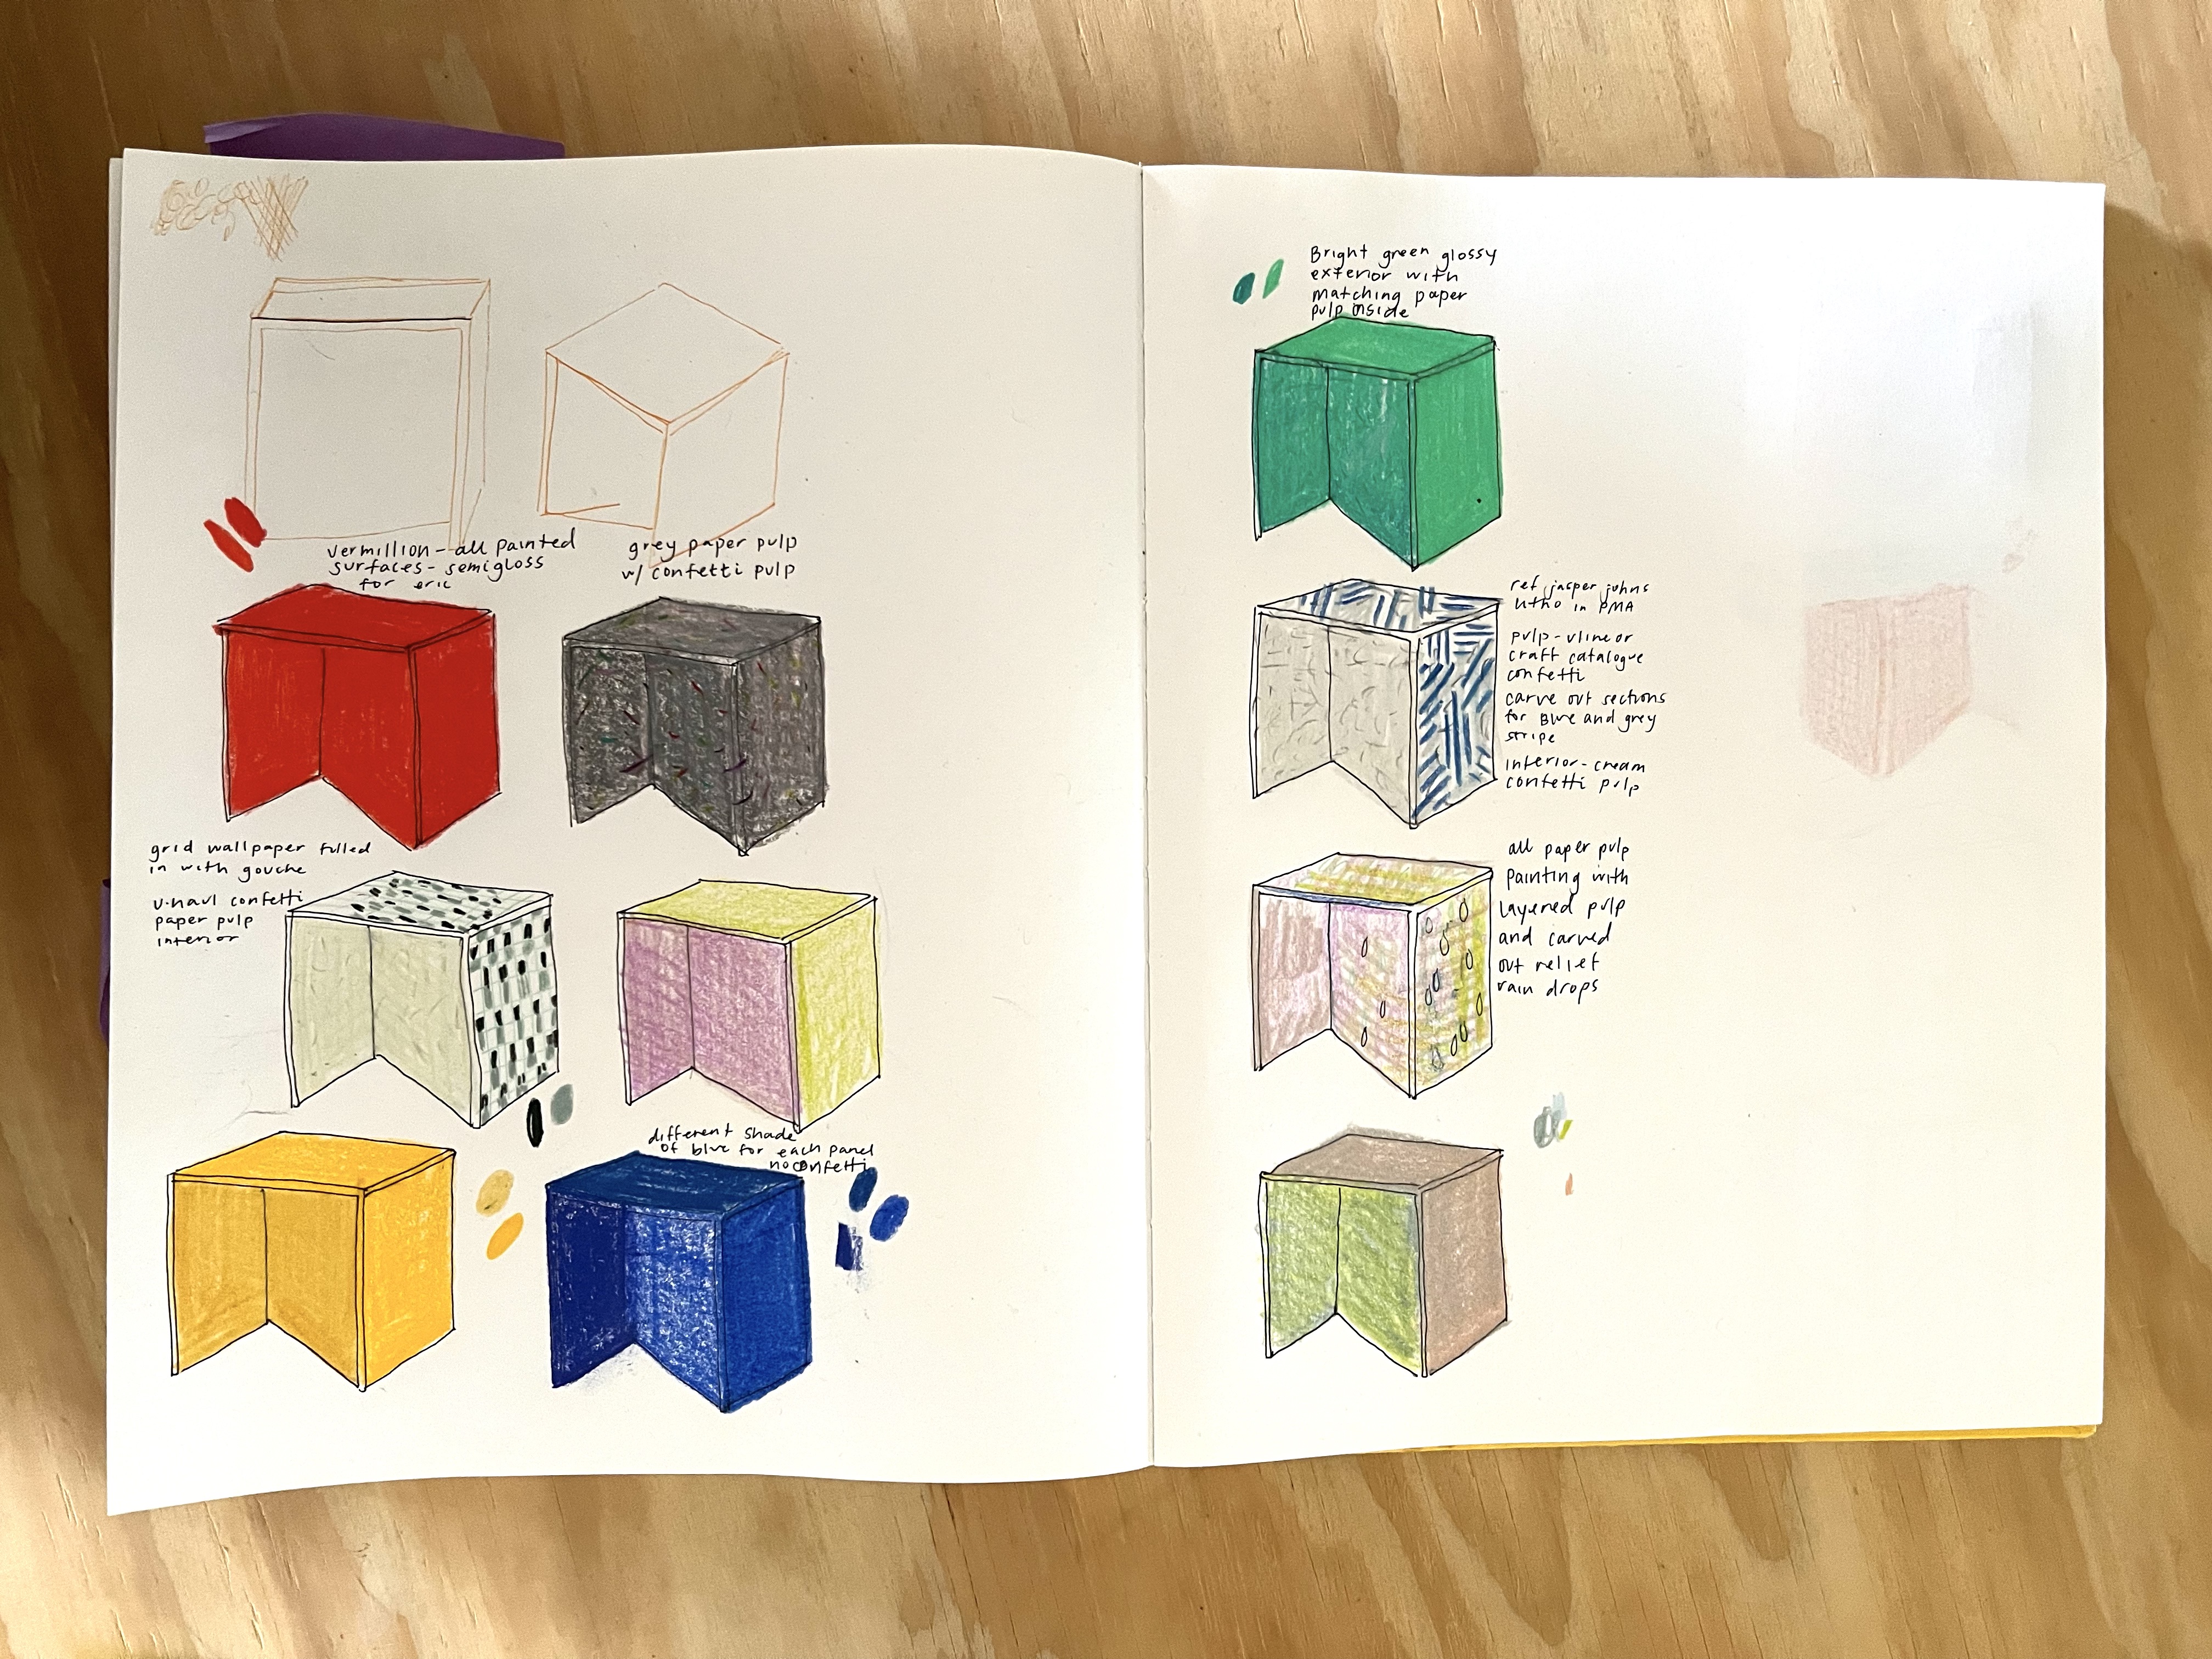 vermillion - all painted
surfaces - semigloss
for eric
grey paper pulp
w/ confetti pulp
grid wallpaper filled
in with gouche
u-haul confetti
paper pulp
interior
different shade
of blue for each panel
no confetti
Bright green glossy
exterior with
matching paper
pulp inside
ref jasper johns
litho in PMA
pulp - uline or
craft catalogue
confetti
carve out sections
for Blue and grey
stripe
interior - cream
confetti pulp
all paper pulp
painting with
layered pulp
and carved
out relief
rain drops